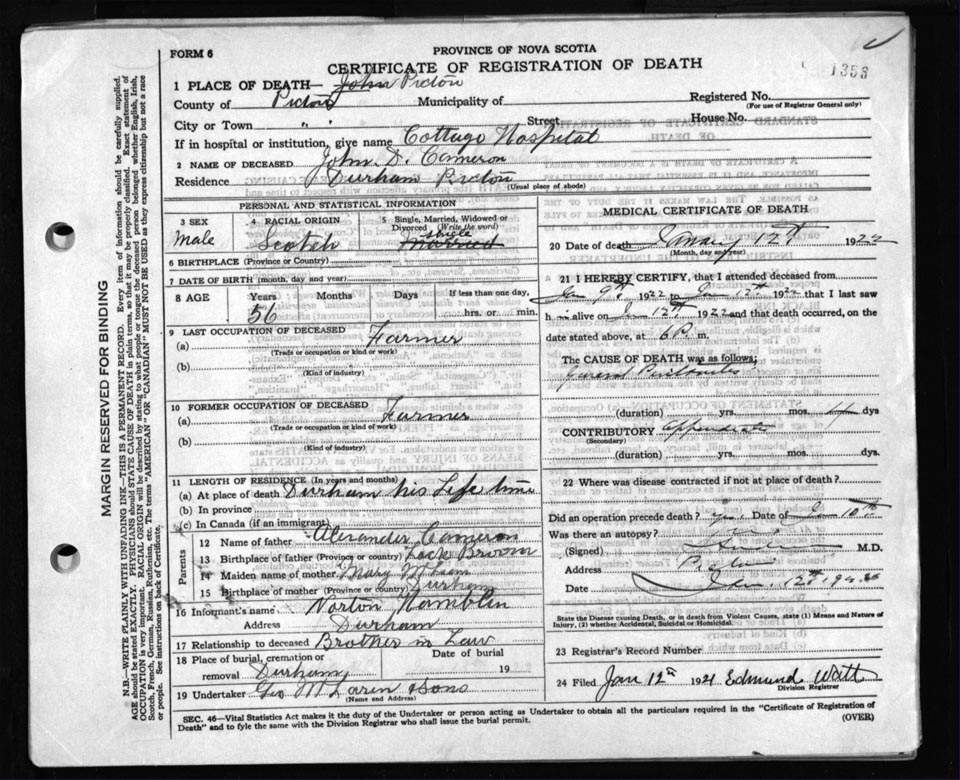 FORM 6
PROVINCE OF NOVA SCOTIA
CERTIFICATE OF REGISTRATION OF DEATH
1353
1 PLACE OF DEATH— John Pictou
County of Pictou Municipality of Registered No.
(For use of Registrar General only)
City or Town " " Street House No.
If in hospital or institution, give name Cottage Hospital
2 NAME OF DECEASED John D. Cameron
Residence Durham Pictou
(Usual place of abode)
PERSONAL AND STATISTICAL INFORMATION
3 SEX 4 RACIAL ORIGIN 5 Single, Married, Widowed or Divorced (Write the word)
Male Scotch Single Married
6 BIRTHPLACE (Province or Country)
7 DATE OF BIRTH (month, day and year)
8 AGE Years Months Days If less than one day,
56 hrs. or min.
9 LAST OCCUPATION OF DECEASED
(a) Farmer
(Trade or occupation or kind or work)
(b)
(Kind of industry)
10 FORMER OCCUPATION OF DECEASED
(a) Farmer
(Trade or occupation or kind of work)
(b)
(Kind of industry)
11 LENGTH OF RESIDENCE (In years and months)
(a) At place of death Durham his Life time
(b) In province
(c) In Canada (if an immigrant)
Parents
12 Name of father Alexander Cameron
13 Birthplace of father (Province or country) Lock Broom
14 Maiden name of mother Mary
15 Birthplace of mother (Province or country) Durham
16 Informant's name Norton Hamblin
Address Durham
17 Relationship to deceased Brother in Law
18 Place of burial, cremation or removal Durham Date of burial 19
19 Undertaker Geo McLaren & Sons
(Name and Address)
MEDICAL CERTIFICATE OF DEATH
20 Date of death January 12th 1922
(Month, day and year)
21 I HEREBY CERTIFY, that I attended deceased from
Jan 9th 1922 to Jan 12th 1922 that I last saw
h im alive on Jan 12th 1922 and that death occurred, on the
date stated above, at 6 P. m.
The CAUSE OF DEATH was as follows:
General Peritonitis
(duration) yrs. mos. 4 dys
CONTRIBUTORY Appendicitis
(Secondary)
(duration) yrs. mos. dys.
22 Where was disease contracted if not at place of death?
Did an operation precede death? Yes Date of Jan 10th
Was there an autopsy?
(Signed) M.D.
Address
Date Jan. 12th
State the Disease causing Death, or in death from Violent Causes, state (1) Means and Nature of
Injury, (2) whether Accidental, Suicidal or Homicidal.
23 Registrar's Record Number
24 Filed Jan 12th 1921 Edmund Watt
Division Registrar
SEC. 46—Vital Statistics Act makes it the duty of the Undertaker or person acting as Undertaker to obtain all the particulars required in the "Certificate of Registration of
Death" and to fyle the same with the Division Registrar who shall issue the burial permit.
(OVER)
MARGIN RESERVED FOR BINDING
N.B.—WRITE PLAINLY WITH UNFADING INK—THIS IS A PERMANENT RECORD. Every item of information should be carefully supplied.
AGE should be stated EXACTLY. PHYSICIANS should STATE CAUSE OF DEATH in plain terms, so that it may be properly classified. Exact statement of
OCCUPATION is very important. RACIAL ORIGIN will be described by stating to what people or tongue the deceased person belonged whether English, Irish,
Scotch, French, German, Russian, Ruthenian, etc. The terms "AMERICAN" OR "CANADIAN" MUST NOT BE USED as they express citizenship but not a race
or people. See instructions on back of Certificate.